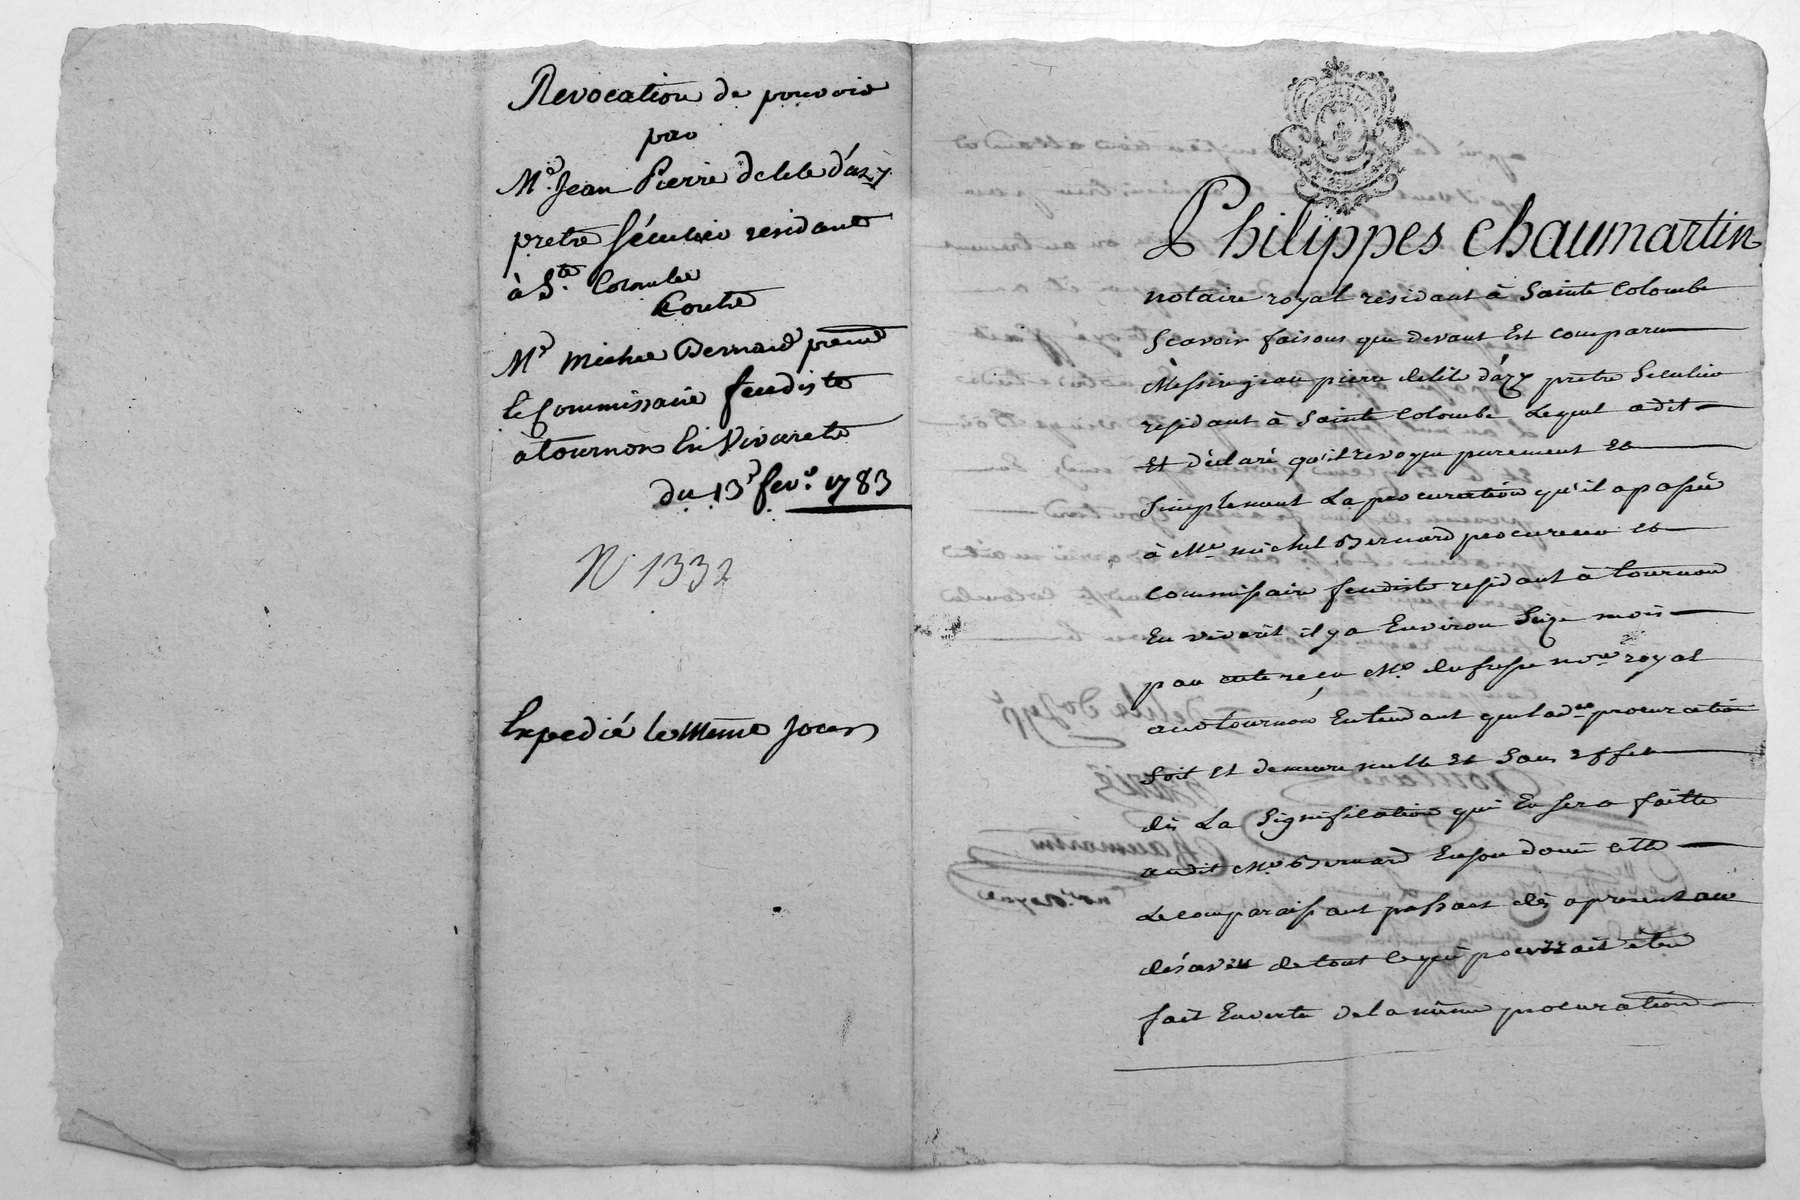 Revocation de pouvoir
par
Mre Jean Pierre Delile d'azy
pretre séculier residant
à Ste Colombe
Contre
Me Michel Bernard
le Commissaire feudiste
a tournon En Vivarets
du 13e fevr. 1783
N 1332
Expedié le Meme Jour
Philippes Chaumartin
notaire royal résidant à Sainte Colombe
Scavoir faisons que devant Est comparu
Messire jean pierre delile d'azy pretre Seculier
residant à Sainte Colombe Lequel a dit
Et déclaré qu'il revoque purement Et
Simplement La procuration qu'il a passée
à Me michel Bernard procureur Et
commissaire feudiste residant à tournon
En vivarêt il y a Environ Seize mois
par acte reçu Me dufresse nore royal
audtournon, Entendant que ladte procuration
Soit Et demeure nulle Et Sans Effet
dès La Signification qui En Sera faitte
audit Me Bernard
Le comparaissant passant dès apresent au
désaveu de tout ce qui pourrait être
fait En vertu de la même procuration